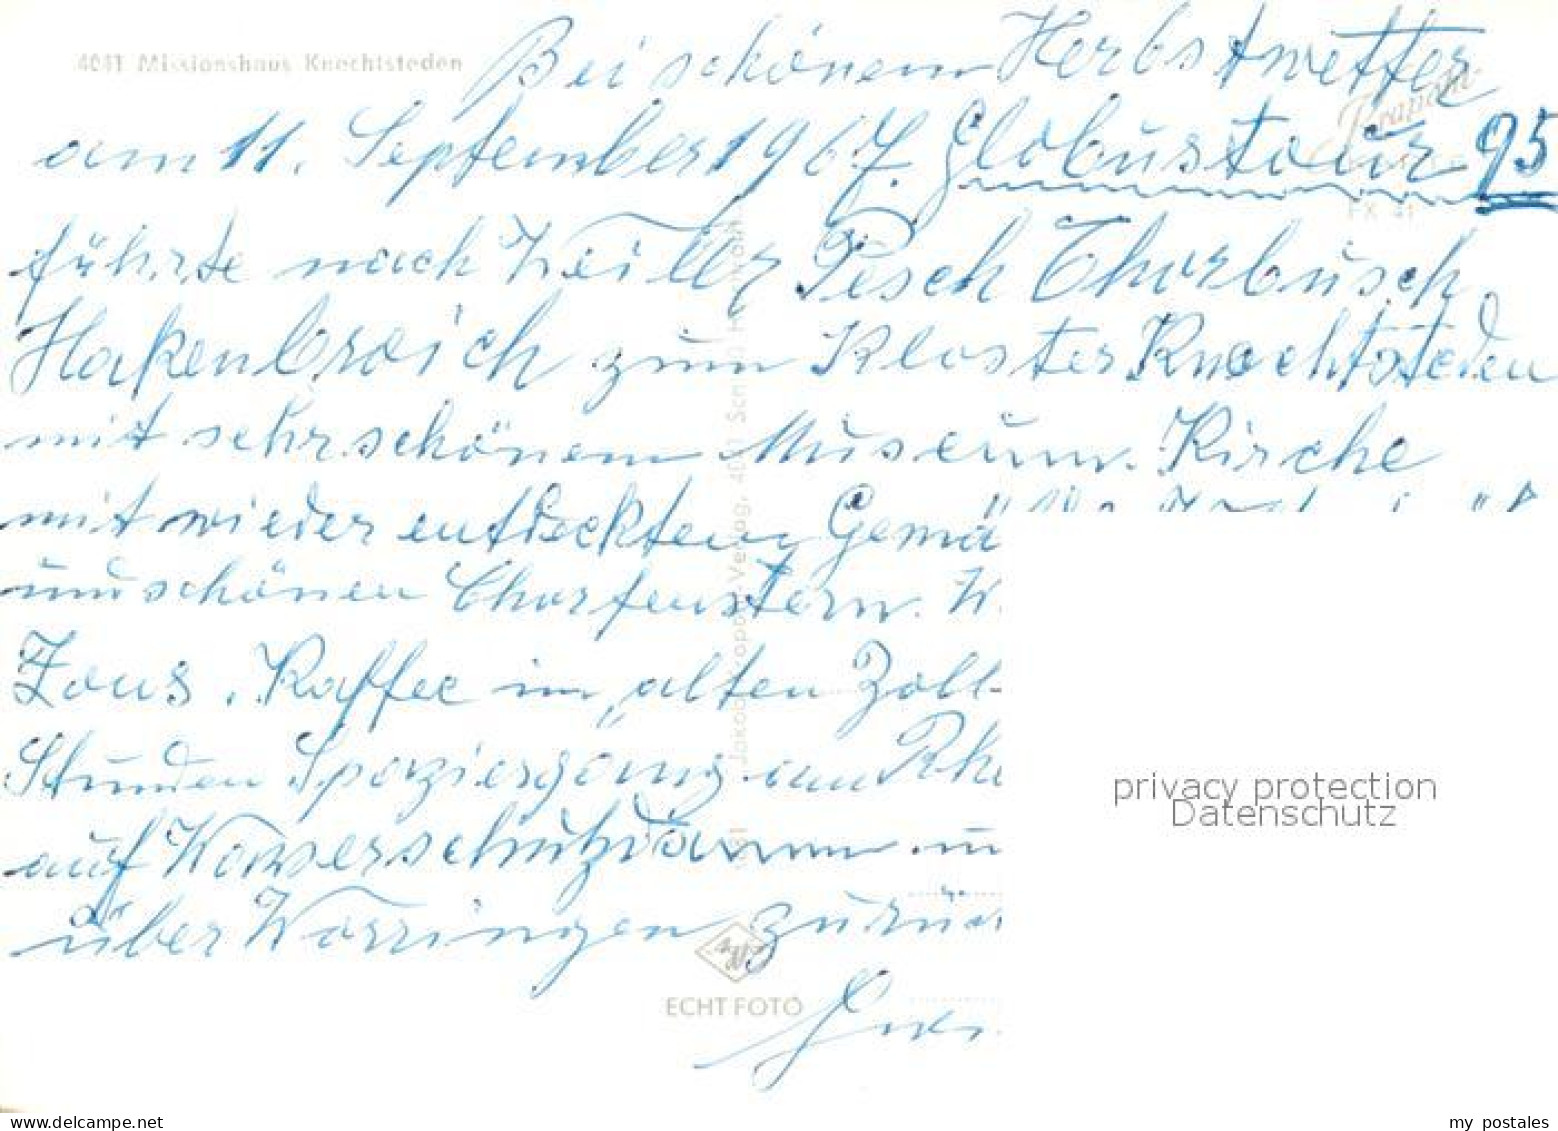 4041 Missionshaus Knechtsteden
Bei schönem Herbstwetter
am 11. September 1967. Globustour 95
führte nach Pesch Chorbusch
Hakenbroich zum Kloster Knechtsteden
mit sehr schönem Museum. Kirche
mit wieder entdecktem Gemä
schönen Chorfenstern. W
Zons. Kaffee im "alten Zoll-
Stunden Spaziergang am Rhe
auf Wasserschutzdamm
über Worringen zurück
ECHT FOTO
privacy protection
Datenschutz
www.delcampe.net
my_postales